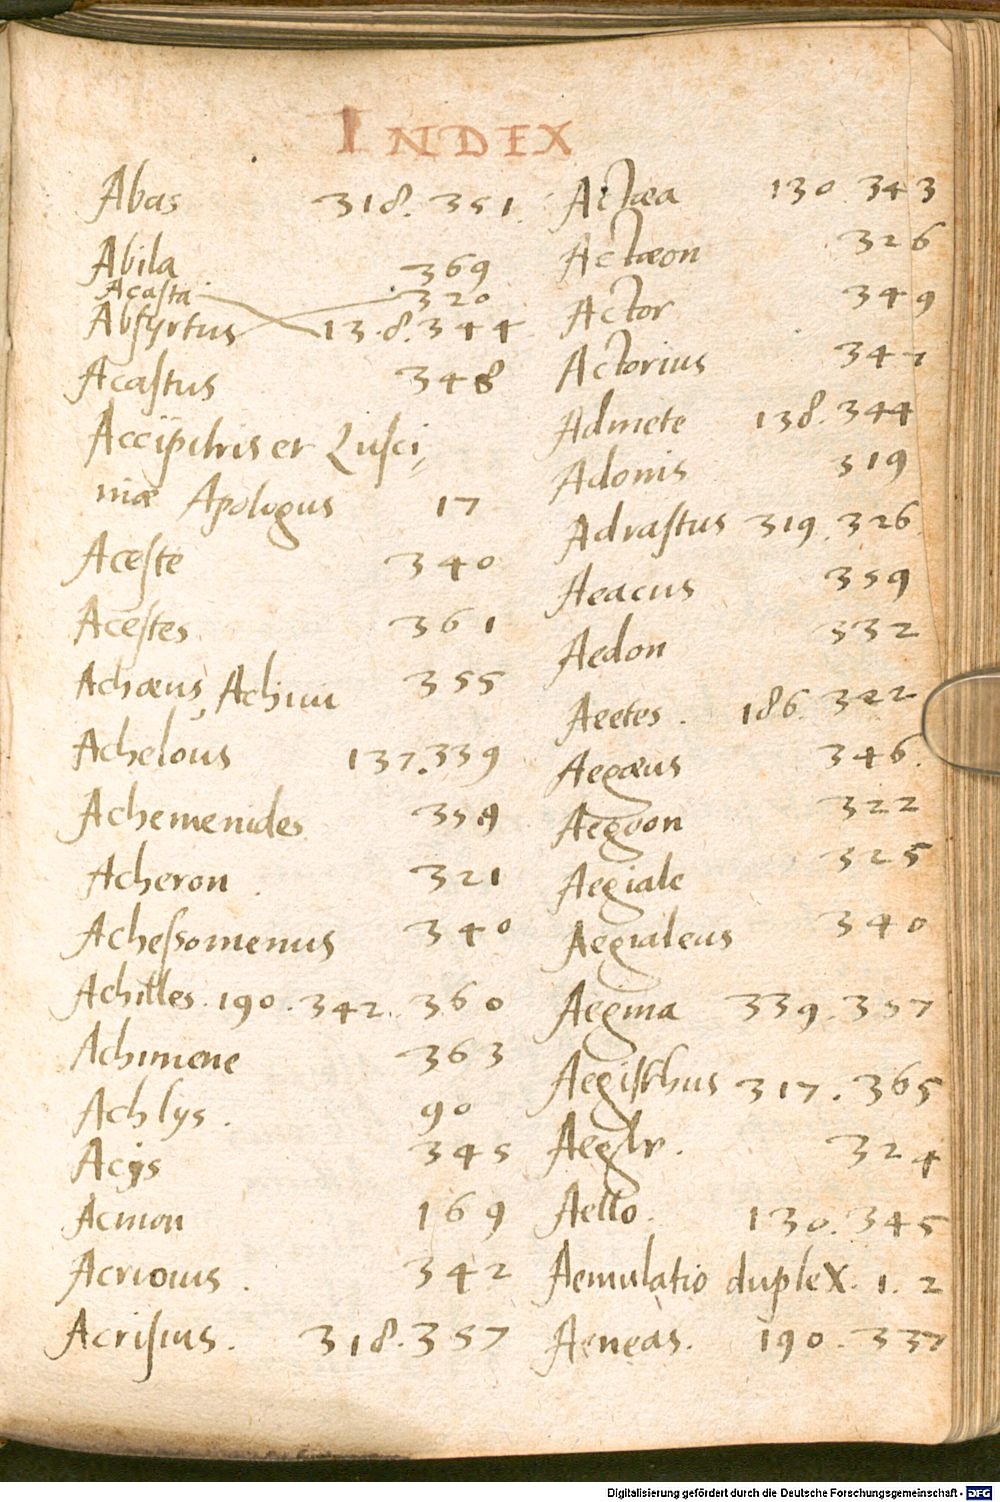 INDEX
Abas 318. 351.
Abila 369
Acasta 320
Absyrtus 138. 344
Acastus 348
Accipitris et Lusci,
niæ Apologus 17
Aceste 340
Acestes 361
Achæus, Achiui 355
Achelous 137. 339
Achemenides 359
Acheron. 321
Achessomenus 340
Achilles. 190. 342. 360
Achimene 363
Achlys. 90
Acijs 345
Acmon 169
342
Acrisius. 318. 357
Actæa 130. 343
Actæon 326
Actor 349
Actorius 347
Admete 138. 344
Adonis 319
Adrastus 319. 326.
Aeacus 359
Aedon 332
Aeetes. 186. 322
Aegæus 346.
Aegæon 322
Aegiale 325
Aegialeus 340
Aegina 339. 357
Aegisthus 317. 365
Aegle. 324
Aello. 130. 345
Aemulatio duplex. 1. 2
Aeneas. 190. 337
Digitalisierung gefördert durch die Deutsche Forschungsgemeinschaft - DFG